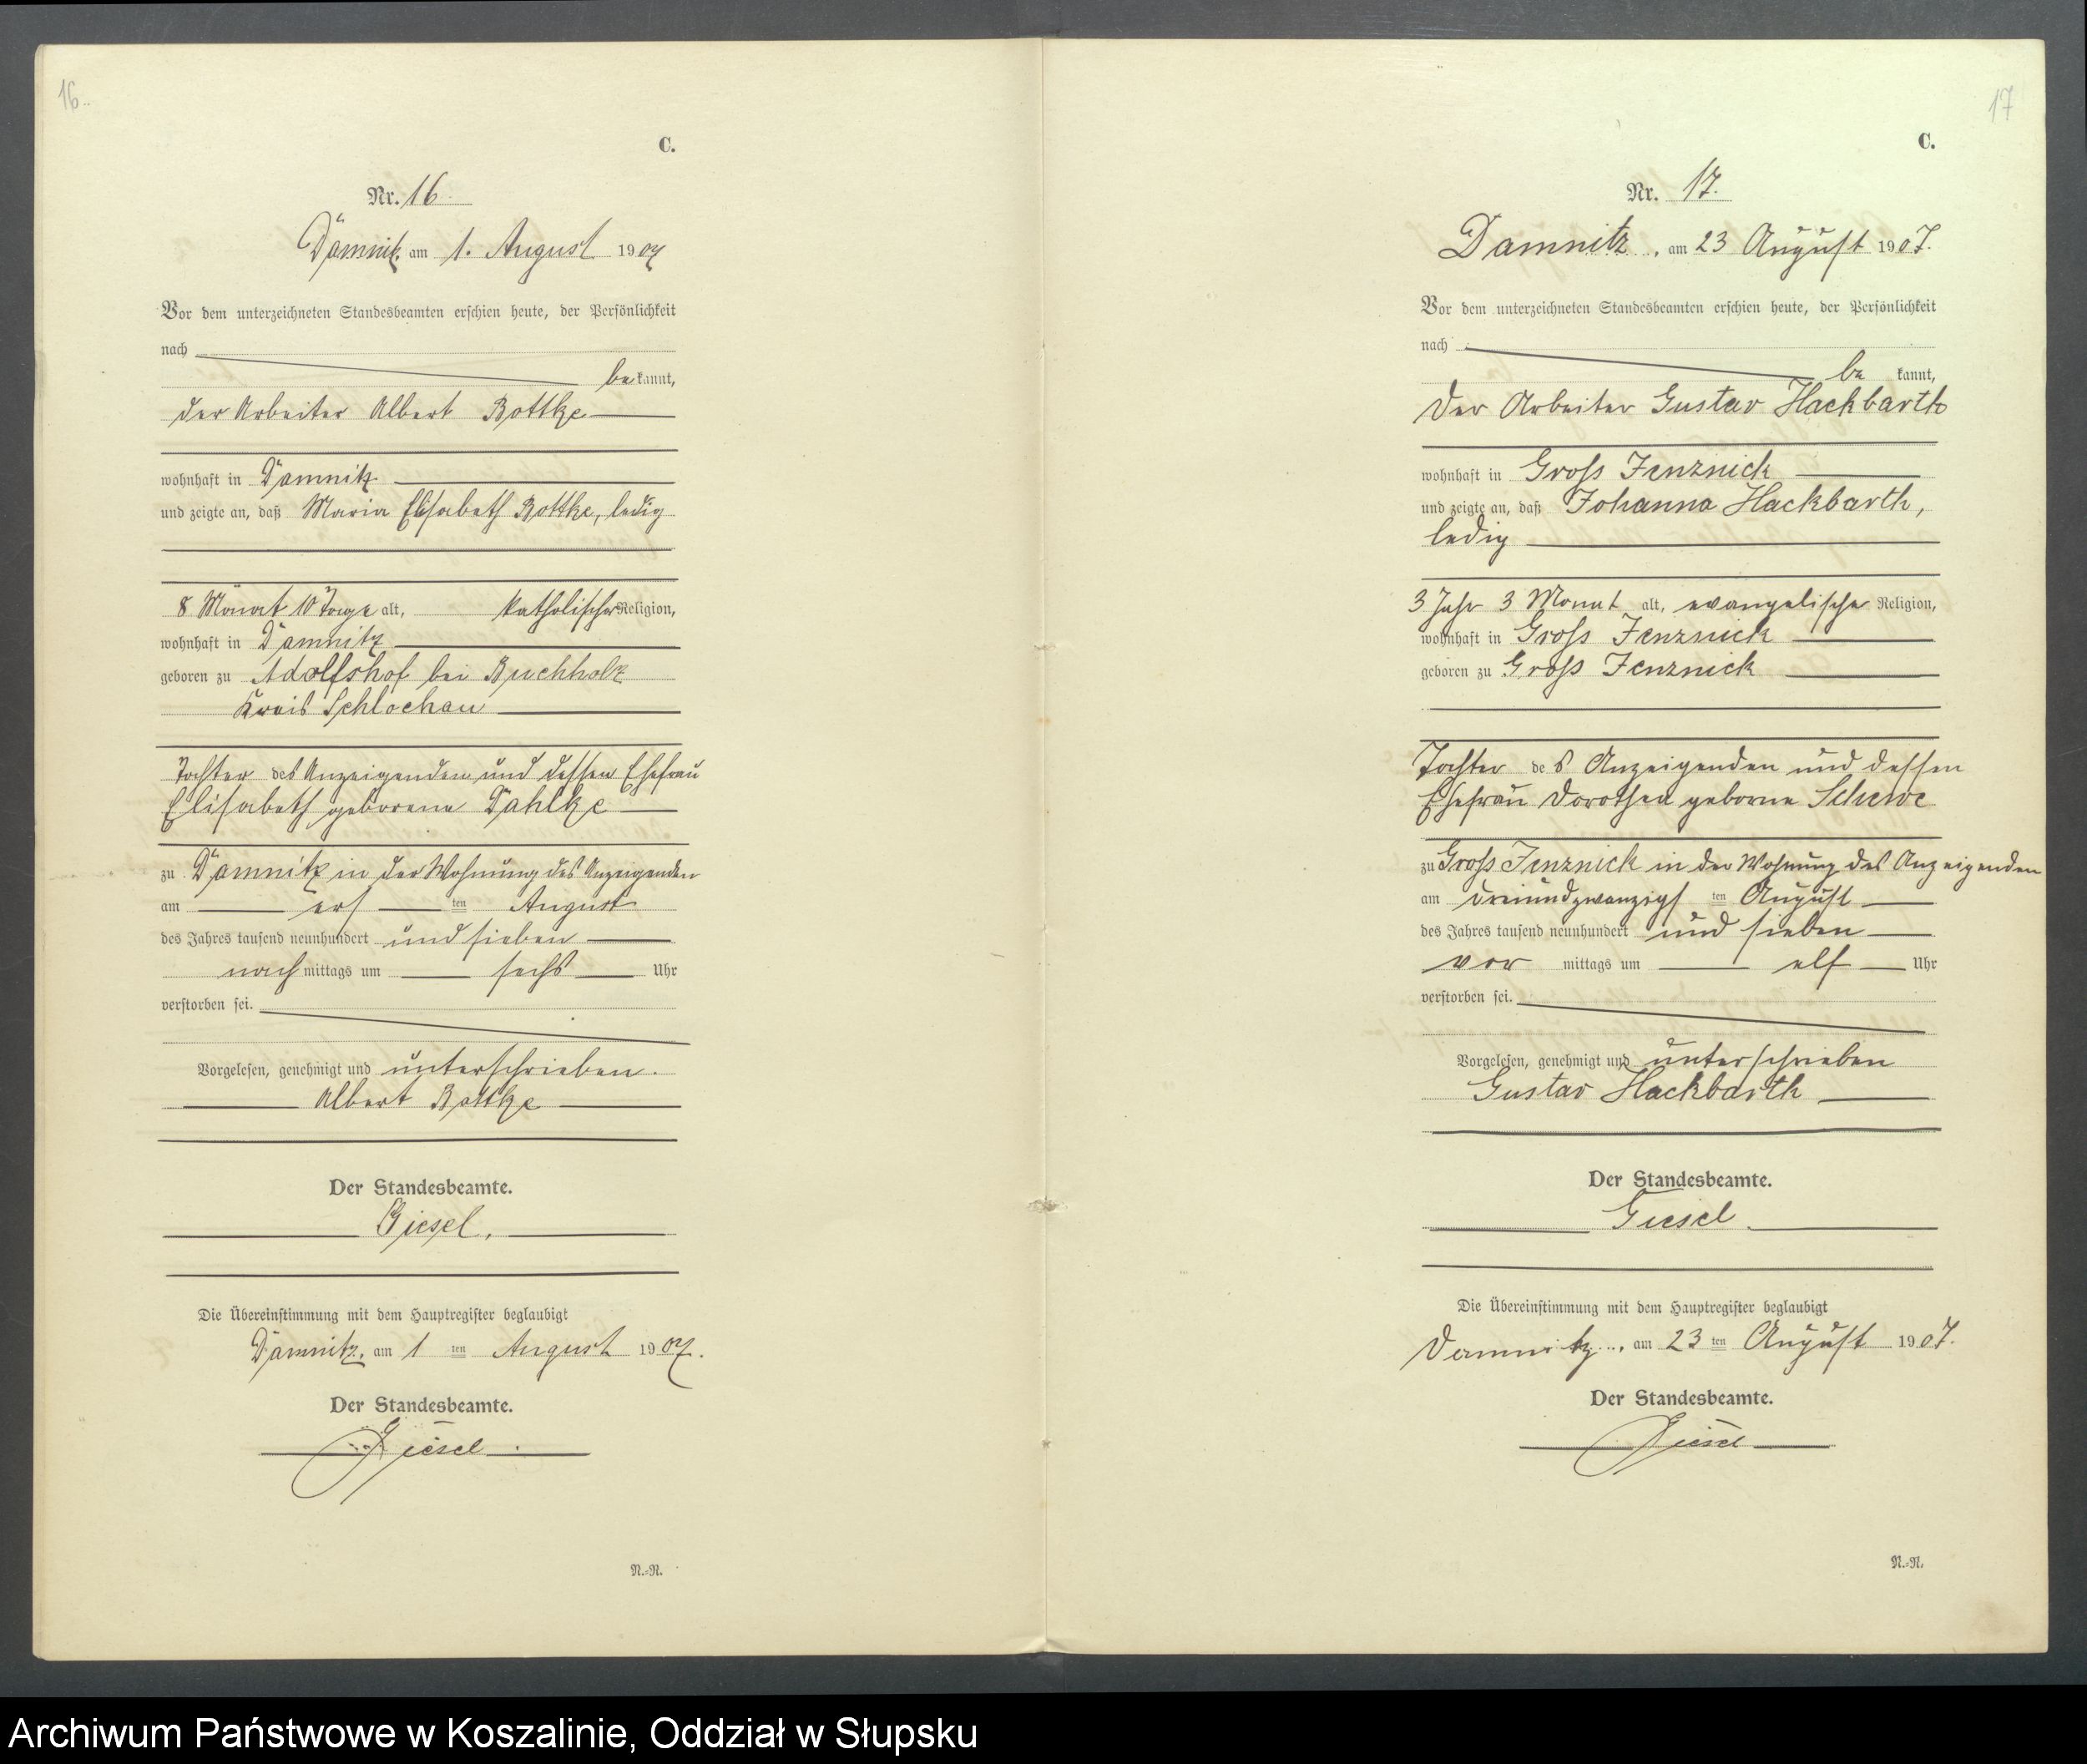 16.
C.
Nr. 16.
Damnitz, am 1. August 1907
Vor dem unterzeichneten Standesbeamten erschien heute, der Persönlichkeit
nach
be kannt,
der Arbeiter Albert Rottke
wohnhaft in Damnitz
und zeigte an, daß Maria Elisabeth Rottke, ledig
8 Monat 10 Tage alt, katholischer Religion,
wohnhaft in Damnitz
geboren zu Adolfshof bei Buchholz
Kreis Schlochau
Tochter des Anzeigenden und dessen Ehefrau
Elisabeth geborene Dahlke
zu Damnitz in der Wohnung des Anzeigenden
am ersten August
des Jahres tausend neunhundert und sieben
nach mittags um sechs Uhr
verstorben sei.
Vorgelesen, genehmigt und unterschrieben.
Albert Rottke
Der Standesbeamte.
Giesel.
Die Übereinstimmung mit dem Hauptregister beglaubigt
Damnitz, am 1 ten August 1907.
Der Standesbeamte.
Giesel.
N.=R.
17
C.
Nr. 17.
Damnitz, am 23 August 1907.
Vor dem unterzeichneten Standesbeamten erschien heute, der Persönlichkeit
nach
be kannt,
der Arbeiter Gustav Hackbarth
wohnhaft in Gross Jenznick
und zeigte an, daß Johanna Hackbarth,
ledig
3 Jahr 3 Monat alt, evangelische Religion,
wohnhaft in Gross Jenznick
geboren zu Gross Jenznick
Tochter des Anzeigenden und dessen
Ehefrau Dorothea geborne Schewe
zu Gross Jenznick in der Wohnung des Anzeigenden
am dreiundzwanzigsten August
des Jahres tausend neunhundert und sieben
vor mittags um elf Uhr
verstorben sei.
Vorgelesen, genehmigt und unterschrieben
Gustav Hackbarth
Der Standesbeamte.
Giesel.
Die Übereinstimmung mit dem Hauptregister beglaubigt
Damnitz, am 23 ten August 1907.
Der Standesbeamte.
Giesel
N.=R.
Archiwum Państwowe w Koszalinie, Oddział w Słupsku